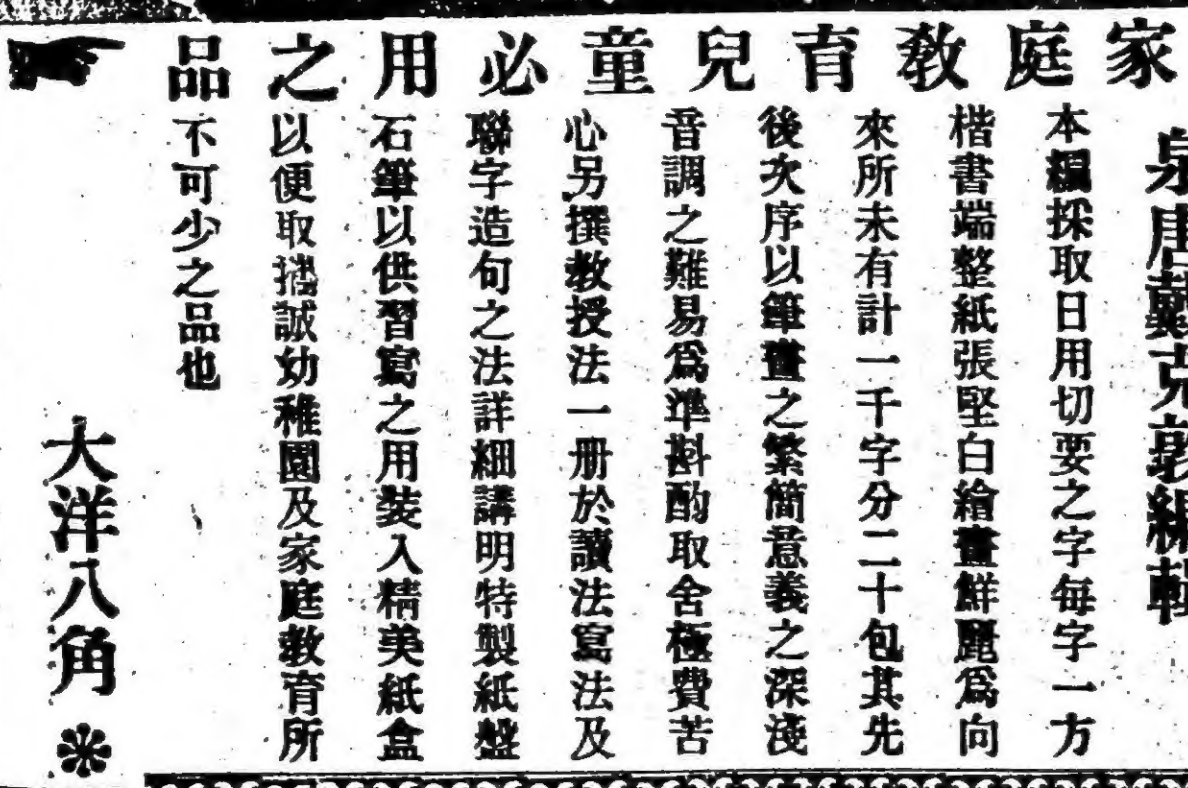 家庭教育兒童必用之品
泉唐戴克敦編輯
本編採取日用切要之字每字一方
楷書端整紙張堅白繪畫鮮麗爲向
來所未有計一千字分二十包其先
後次序以筆畫之繁簡意義之深淺
音調之難易爲準斟酌取舍極費苦
心另撰教授法一册於讀法寫法及
聯字造句之法詳細講明特製紙盤
石筆以供習寫之用裝入精美紙盒
以便取攜誠幼稚園及家庭教育所
不可少之品也
大洋八角